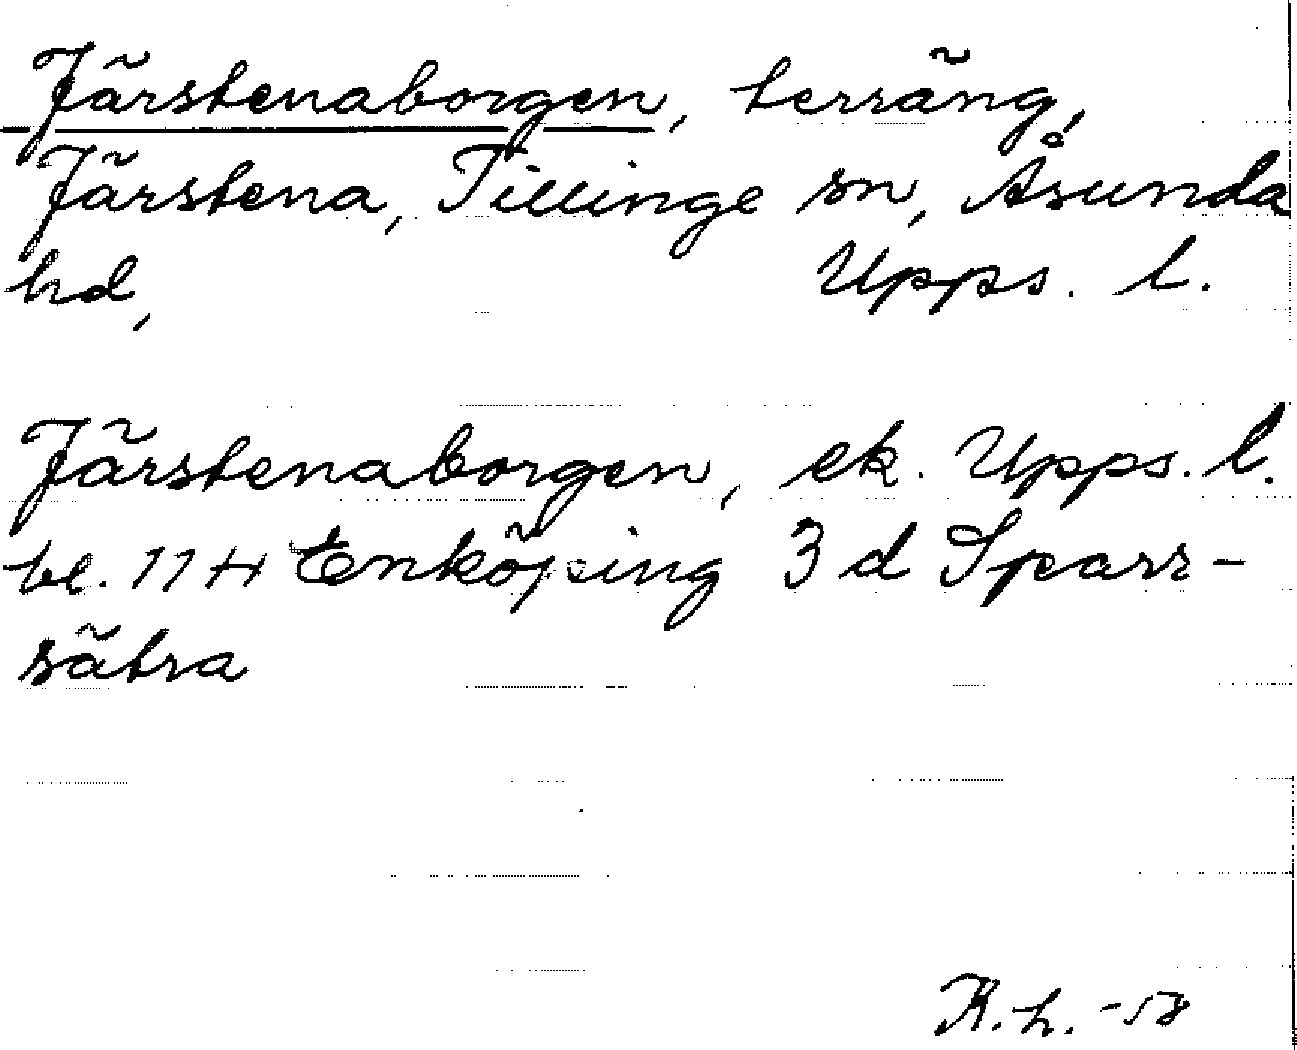 Järstenaborgen, terräng,
Järstena, Tillinge sn, Åsunda
hd, Upps. l.
Järstenaborgen, ek. Upps. l.
bl. 11 H Enköping 3 d Sparr-
sätra
K. h. -58